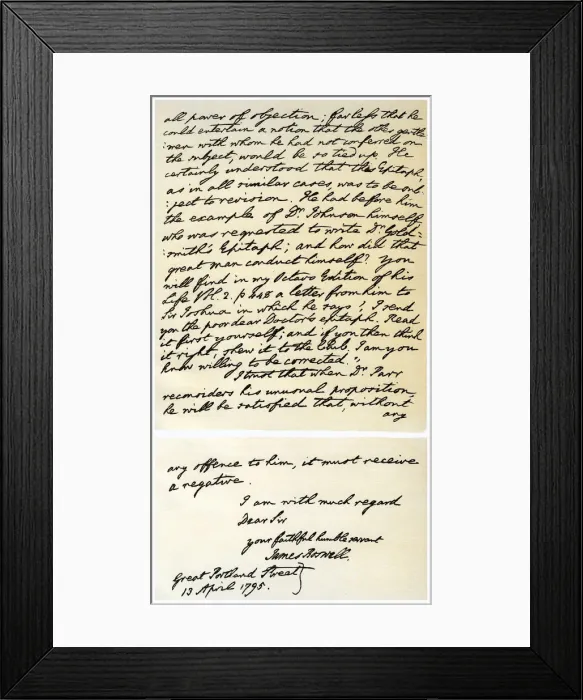 all power of objection; far less that he
could entertain a notion that the other gentle
:men with whom he had not conferred on
the subject, would be so tied up. He
certainly understood that this Epitaph,
as in all similar cases, was to be sub
:ject to revision. He had before him
the example of Dr. Johnson himself,
who was requested to write Dr. Gold=
:smith's Epitaph; and how did that
great man conduct himself? you
will find in my Octavo Edition of his
Life Vol. 2. p. 448 a letter from him to
Sir Joshua in which he says, "I send
you the poor dear Doctor's epitaph. Read
it first yourself; and if you then think
it right, shew it to the Club. I am you
know willing to be corrected."
I trust that when Dr. Parr
reconsiders his unusual proposition,
he will be satisfied that, without
any
any offence to him, it must receive
a negative.
I am with much regard
Dear Sir
your faithful humble servant
James Boswell.
Great Portland Street
13 April 1795.